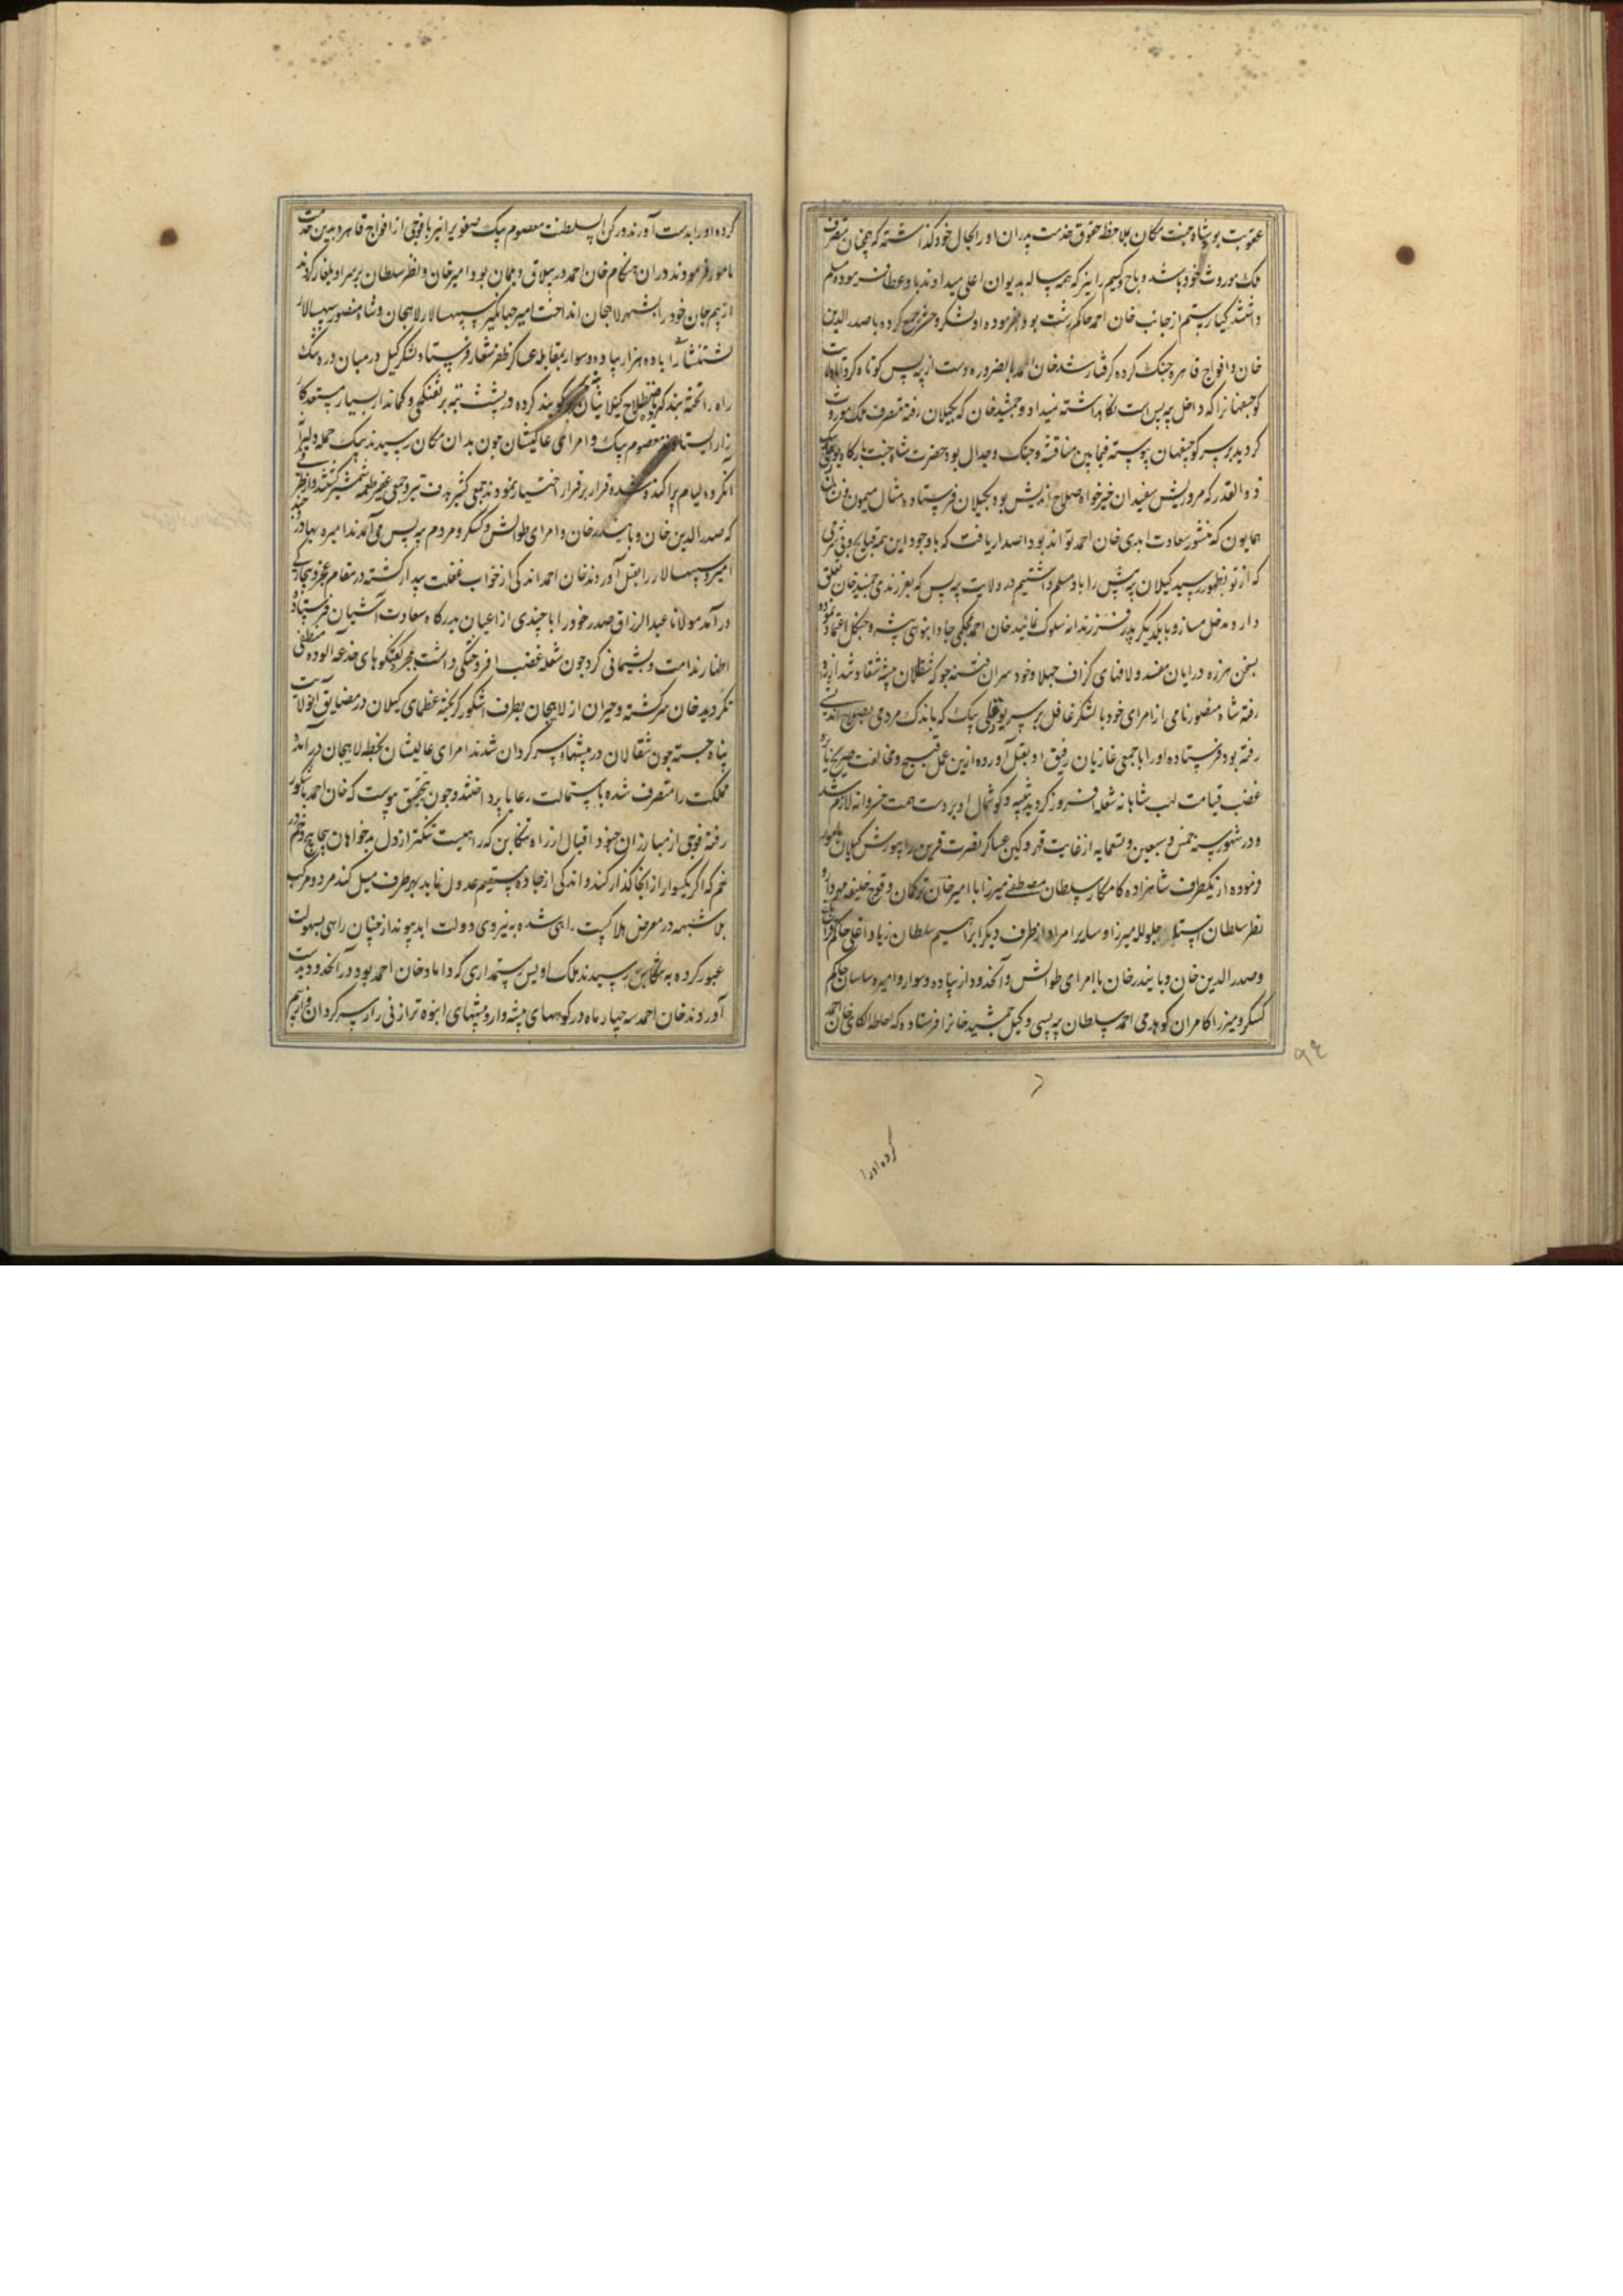 عقوبت بود شاه جنت مکان بملاحظه حقوق خدمت پدران او را بحال خود گذاشته که همچنان متصرف
ملک موروث خود باشد و باج کسیم را نیز که همه ساله بدیوان اعلی میدادند باو عطا فرموده مسلم
داشتند کیا رستم از جانب خان احمد حاکم رشت بود بفرموده او لشکر و حشر جمع کرده با صدر الدین
خان و افواج قاهره جنک کرده کرفتار شد خان احمد بالضروره دست از پیه پس کوتاه کرد اما ولایت
کوچصفهانرا که داخل پیه پس است نکاهداشته نمیداد و جمشید خان که بکیلان رفته متصرف ملک موروث
کردید بر سر کوچصفهان پیوسته فیمابین مناقشه و جنک و جدال بود حضرت شاه جنت بارکاه یولقلی بیک
ذو القدر که مرد ریش سفیدان خیر خواه صلاح اندیش بود بکیلان فرستاده مثال میمون و نشان
همایون که منشور سعادت ابدی خان احمد تواند بود اصدار یافت که باوجود این همه قبایح و بی شرمی
که از تو بظهور رسید کیلان پیه پیش را باو مسلم داشتیم در ولایت پیه پس که بفرزندی جمشید خان تعلق
دارد مدخل مساز و با یکدیکر پدر فرزندانه سلوک نمائید خان احمد بمحکمی جا و انبوهی بیشه و جنکل اعتماد نموده
بسخن هرزه درایان مفسد و لافهای کزاف جهلا و خود سران فتنه جو که شغلان بیشه شقاوتند از ره
رفته شاه منصور نامی از امرای خود با لشکر غافل بر سر یولقلی بیک که باندک مردمی بصلاح اندیشی
رفته بود فرستاده او را با جمعی غازیان رفیق او بقتل آورده ازین عمل قبیح و مخالفت صریح نایره
غضب قیامت لهب شاهانه شعله افروز کردید تنبیه و کوشمال او بر دست همت خسروانه لازم شد
و در شهور سنه خمس و سبعین و تسعمایه از غایت قهر و کین عساکر نصرت قرین را بیورش کیلان مامور
فرموده از یکطرف شاهزاده کامکار سلطان مصطفی میرزا با امیر خان ترکمان و قوچ خلیفه مهردار و
نظر سلطان استاجلو لله میرزا و سایر امرا و از طرف دیکر ابراهیم سلطان زیاد اغلی حاکم
و صدر الدین خان و بایندر خان با امرای طوالش و آنحدود از پیاده و سوار و امیره ساسان حاکم
کسکر و میرزا کامران کوهدمی احمد سلطان پیه پسی وکیل جمشید خانرا فرستاده که احاطه الکای خان احمد
۹۴
کرده او را
کرده او را بدست آورند و رکن السلطنت معصوم بیک صفویرا نیز با فوجی از افواج قاهره بدین خدمت
مامور فرمودند در آن هنکام خان احمد در ییلاق دیلمان بود امیر خان و نظر سلطان بر سر او یلغار کردند
از بیم جان خود را بشهر لاهجان انداخت امیر جهانکیر سپهسالار لاهیجان و شاه منصور سپهسالار
لشتنشا را با ده هزار پیاده و سوار بمقابله عساکر ظفر شعار فرستاد لشکر کیل در میان دره تنک
راه را تخته بند کرده باصطلاح کیلانیان کویند کرده در پشت پته بر تفنکچی و کماندار بسیار مستعد کار
زار ایستادند معصوم بیک و امرای عالیشان چون بدان مکان رسیدند بیک حمله دلیرانه
آن کروه لیام پراکنده شده قرار بر فرار اختیار نمودند جمعی کثیر هدف تیر و جمعی غفیر طعمه شمشیر کشتند و از طرفی
که صدر الدین خان و بایندر خان و امرای طوالش و کسکر و مردم پیه پس می آمدند امیره بهادر
امیره سپهسالار را بقتل آوردند خان احمد اندکی از خواب غفلت بیدار کشته در مقام عجز و بیچارکی
درآمد مولانا عبد الرزاق صدر خود را با چندی از اعیان بدرکاه سعادت آشیان فرستاده
اظهار ندامت و پشیمانی کرد چون شعله غضب افروختکی داشت بمجرد کفتکوهای خدعه آلوده منطفی
نکردید خان سرکشته و حیران از لاهیجان بطرف اشکور کریخته عظمای کیلان در مضایق آنولایت
پناه جسته چون شغالان در بیشها سرکردان شدند امرای عالیشان بخطه لاهیجان در آمده
مملکت را متصرف شده باستمالت رعایا پرداختند و چون بتحقیق پیوست که خان احمد باشکور
رفته فوجی از مبارزان جنود اقبال از راه تنکابن که راهیست تنکتر از دل بدخواهان پیچاپیچ و خم در
خم که اگر یکسوار از آنجا گذار کند و اندکی از جاده مستقیم عدول نماید بهر طرف میل کند مرد و مرکب
بلا شبهه در معرض هلاکست راهی شده به نیروی دولت ابد پیوند از چنان راهی بسهولت
عبور کرده به تنکابن رسیدند ملک اویس رستمداری که داماد خان احمد بود در آنحدود بدست
آوردند خان احمد سه چهار ماه در کوههای بیشه وار و بیشهای انبوه تر از نی زار سرکردان و از بیم